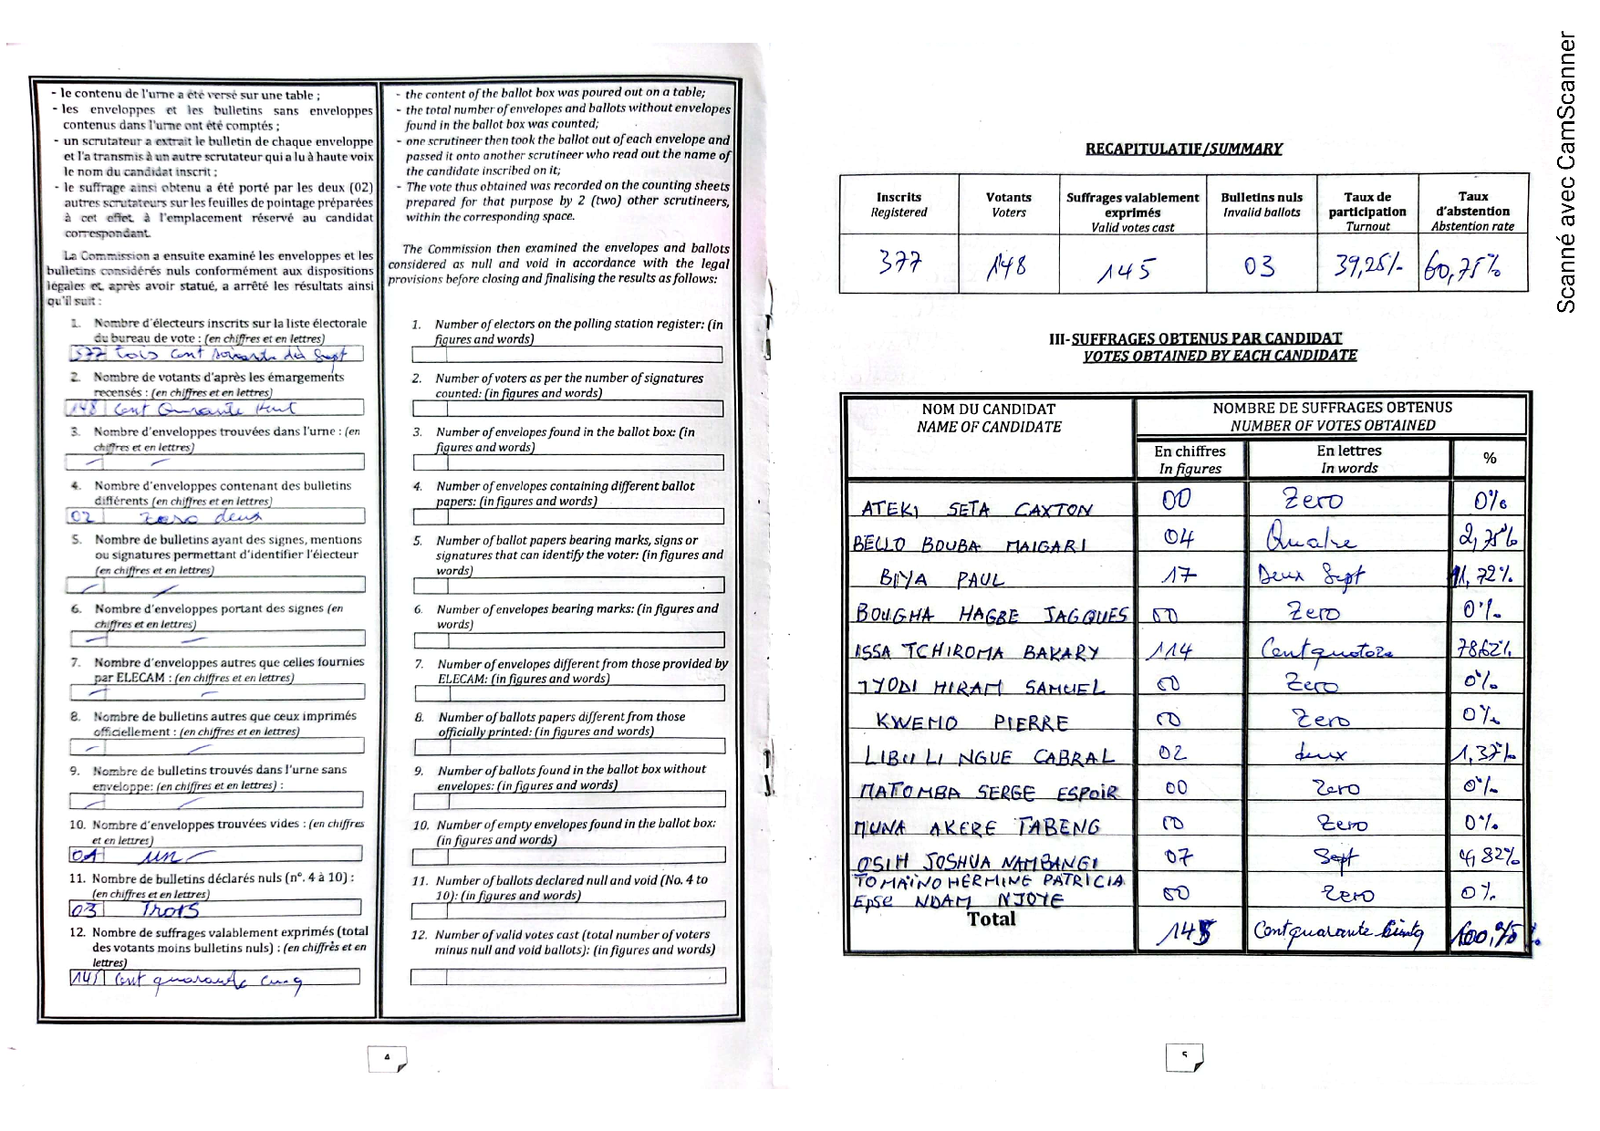 - le contenu de l'urne a été versé sur une table ;
- les enveloppes et les bulletins sans enveloppes
contenus dans l'urne ont été comptés ;
- un scrutateur a extrait le bulletin de chaque enveloppe
et l'a transmis à un autre scrutateur qui a lu à haute voix
le nom du candidat inscrit ;
- le suffrage ainsi obtenu a été porté par les deux (02)
autres scrutateurs sur les feuilles de pointage préparées
à cet effet à l'emplacement réservé au candidat
correspondant.
La Commission a ensuite examiné les enveloppes et les
bulletins considérés nuls conformément aux dispositions
légales et après avoir statué, a arrêté les résultats ainsi
qu'il suit :
1. Nombre d'électeurs inscrits sur la liste électorale
du bureau de vote : (en chiffres et en lettres)
377 trois cent soixante dix sept
2. Nombre de votants d'après les émargements
recensés : (en chiffres et en lettres)
148 Cent Quarante Huit
3. Nombre d'enveloppes trouvées dans l'urne : (en
chiffres et en lettres)
4. Nombre d'enveloppes contenant des bulletins
différents (en chiffres et en lettres)
02 zero deux
5. Nombre de bulletins ayant des signes, mentions
ou signatures permettant d'identifier l'électeur
(en chiffres et en lettres)
6. Nombre d'enveloppes portant des signes (en
chiffres et en lettres)
7. Nombre d'enveloppes autres que celles fournies
par ELECAM : (en chiffres et en lettres)
8. Nombre de bulletins autres que ceux imprimés
officiellement : (en chiffres et en lettres)
9. Nombre de bulletins trouvés dans l'urne sans
enveloppe: (en chiffres et en lettres) :
10. Nombre d'enveloppes trouvées vides : (en chiffres
et en lettres)
01 un
11. Nombre de bulletins déclarés nuls (n°. 4 à 10) :
(en chiffres et en lettres)
03 Trois
12. Nombre de suffrages valablement exprimés (total
des votants moins bulletins nuls) : (en chiffres et en
lettres)
145 Cent quarante cinq
4
- the content of the ballot box was poured out on a table;
- the total number of envelopes and ballots without envelopes
found in the ballot box was counted;
- one scrutineer then took the ballot out of each envelope and
passed it onto another scrutineer who read out the name of
the candidate inscribed on it;
- The vote thus obtained was recorded on the counting sheets
prepared for that purpose by 2 (two) other scrutineers,
within the corresponding space.
The Commission then examined the envelopes and ballots
considered as null and void in accordance with the legal
provisions before closing and finalising the results as follows:
1. Number of electors on the polling station register: (in
figures and words)
2. Number of voters as per the number of signatures
counted: (in figures and words)
3. Number of envelopes found in the ballot box: (in
figures and words)
4. Number of envelopes containing different ballot
papers: (in figures and words)
5. Number of ballot papers bearing marks, signs or
signatures that can identify the voter: (in figures and
words)
6. Number of envelopes bearing marks: (in figures and
words)
7. Number of envelopes different from those provided by
ELECAM: (in figures and words)
8. Number of ballots papers different from those
officially printed: (in figures and words)
9. Number of ballots found in the ballot box without
envelopes: (in figures and words)
10. Number of empty envelopes found in the ballot box:
(in figures and words)
11. Number of ballots declared null and void (No. 4 to
10): (in figures and words)
12. Number of valid votes cast (total number of voters
minus null and void ballots): (in figures and words)
RECAPITULATIF/SUMMARY
Inscrits Registered Votants Voters Suffrages valablement exprimés Valid votes cast Bulletins nuls Invalid ballots Taux de participation Turnout Taux d'abstention Abstention rate
377 148 145 03 39,25% 60,75%
III- SUFFRAGES OBTENUS PAR CANDIDAT
VOTES OBTAINED BY EACH CANDIDATE
NOM DU CANDIDAT NOMBRE DE SUFFRAGES OBTENUS
NAME OF CANDIDATE NUMBER OF VOTES OBTAINED
En chiffres En lettres %
In figures In words
ATEKI SETA CAXTON 00 Zero 0%
BELLO BOUBA MAIGARI 04 Quatre 2,75%
BIYA PAUL 17 Deux Sept 11,72%
BOUGHA HAGBE JACQUES 00 Zero 0%
ISSA TCHIROMA BAKARY 114 Cent quatorze 78,62%
IYODI HIRAM SAMUEL 00 Zero 0%
KWEMO PIERRE 00 Zero 0%
LIBII LI NGUE CABRAL 02 deux 1,37%
MATOMBA SERGE ESPOIR 00 Zero 0%
MUNA AKERE TABENG 00 Zero 0%
OSIH JOSHUA NAMBANGI 07 Sept 4,82%
TOMAINO HERMINE PATRICIA
Epse NDAM NJOYE 00 Zero 0%
Total 145 Cent quarante cinq
5
Scanné avec CamScanner